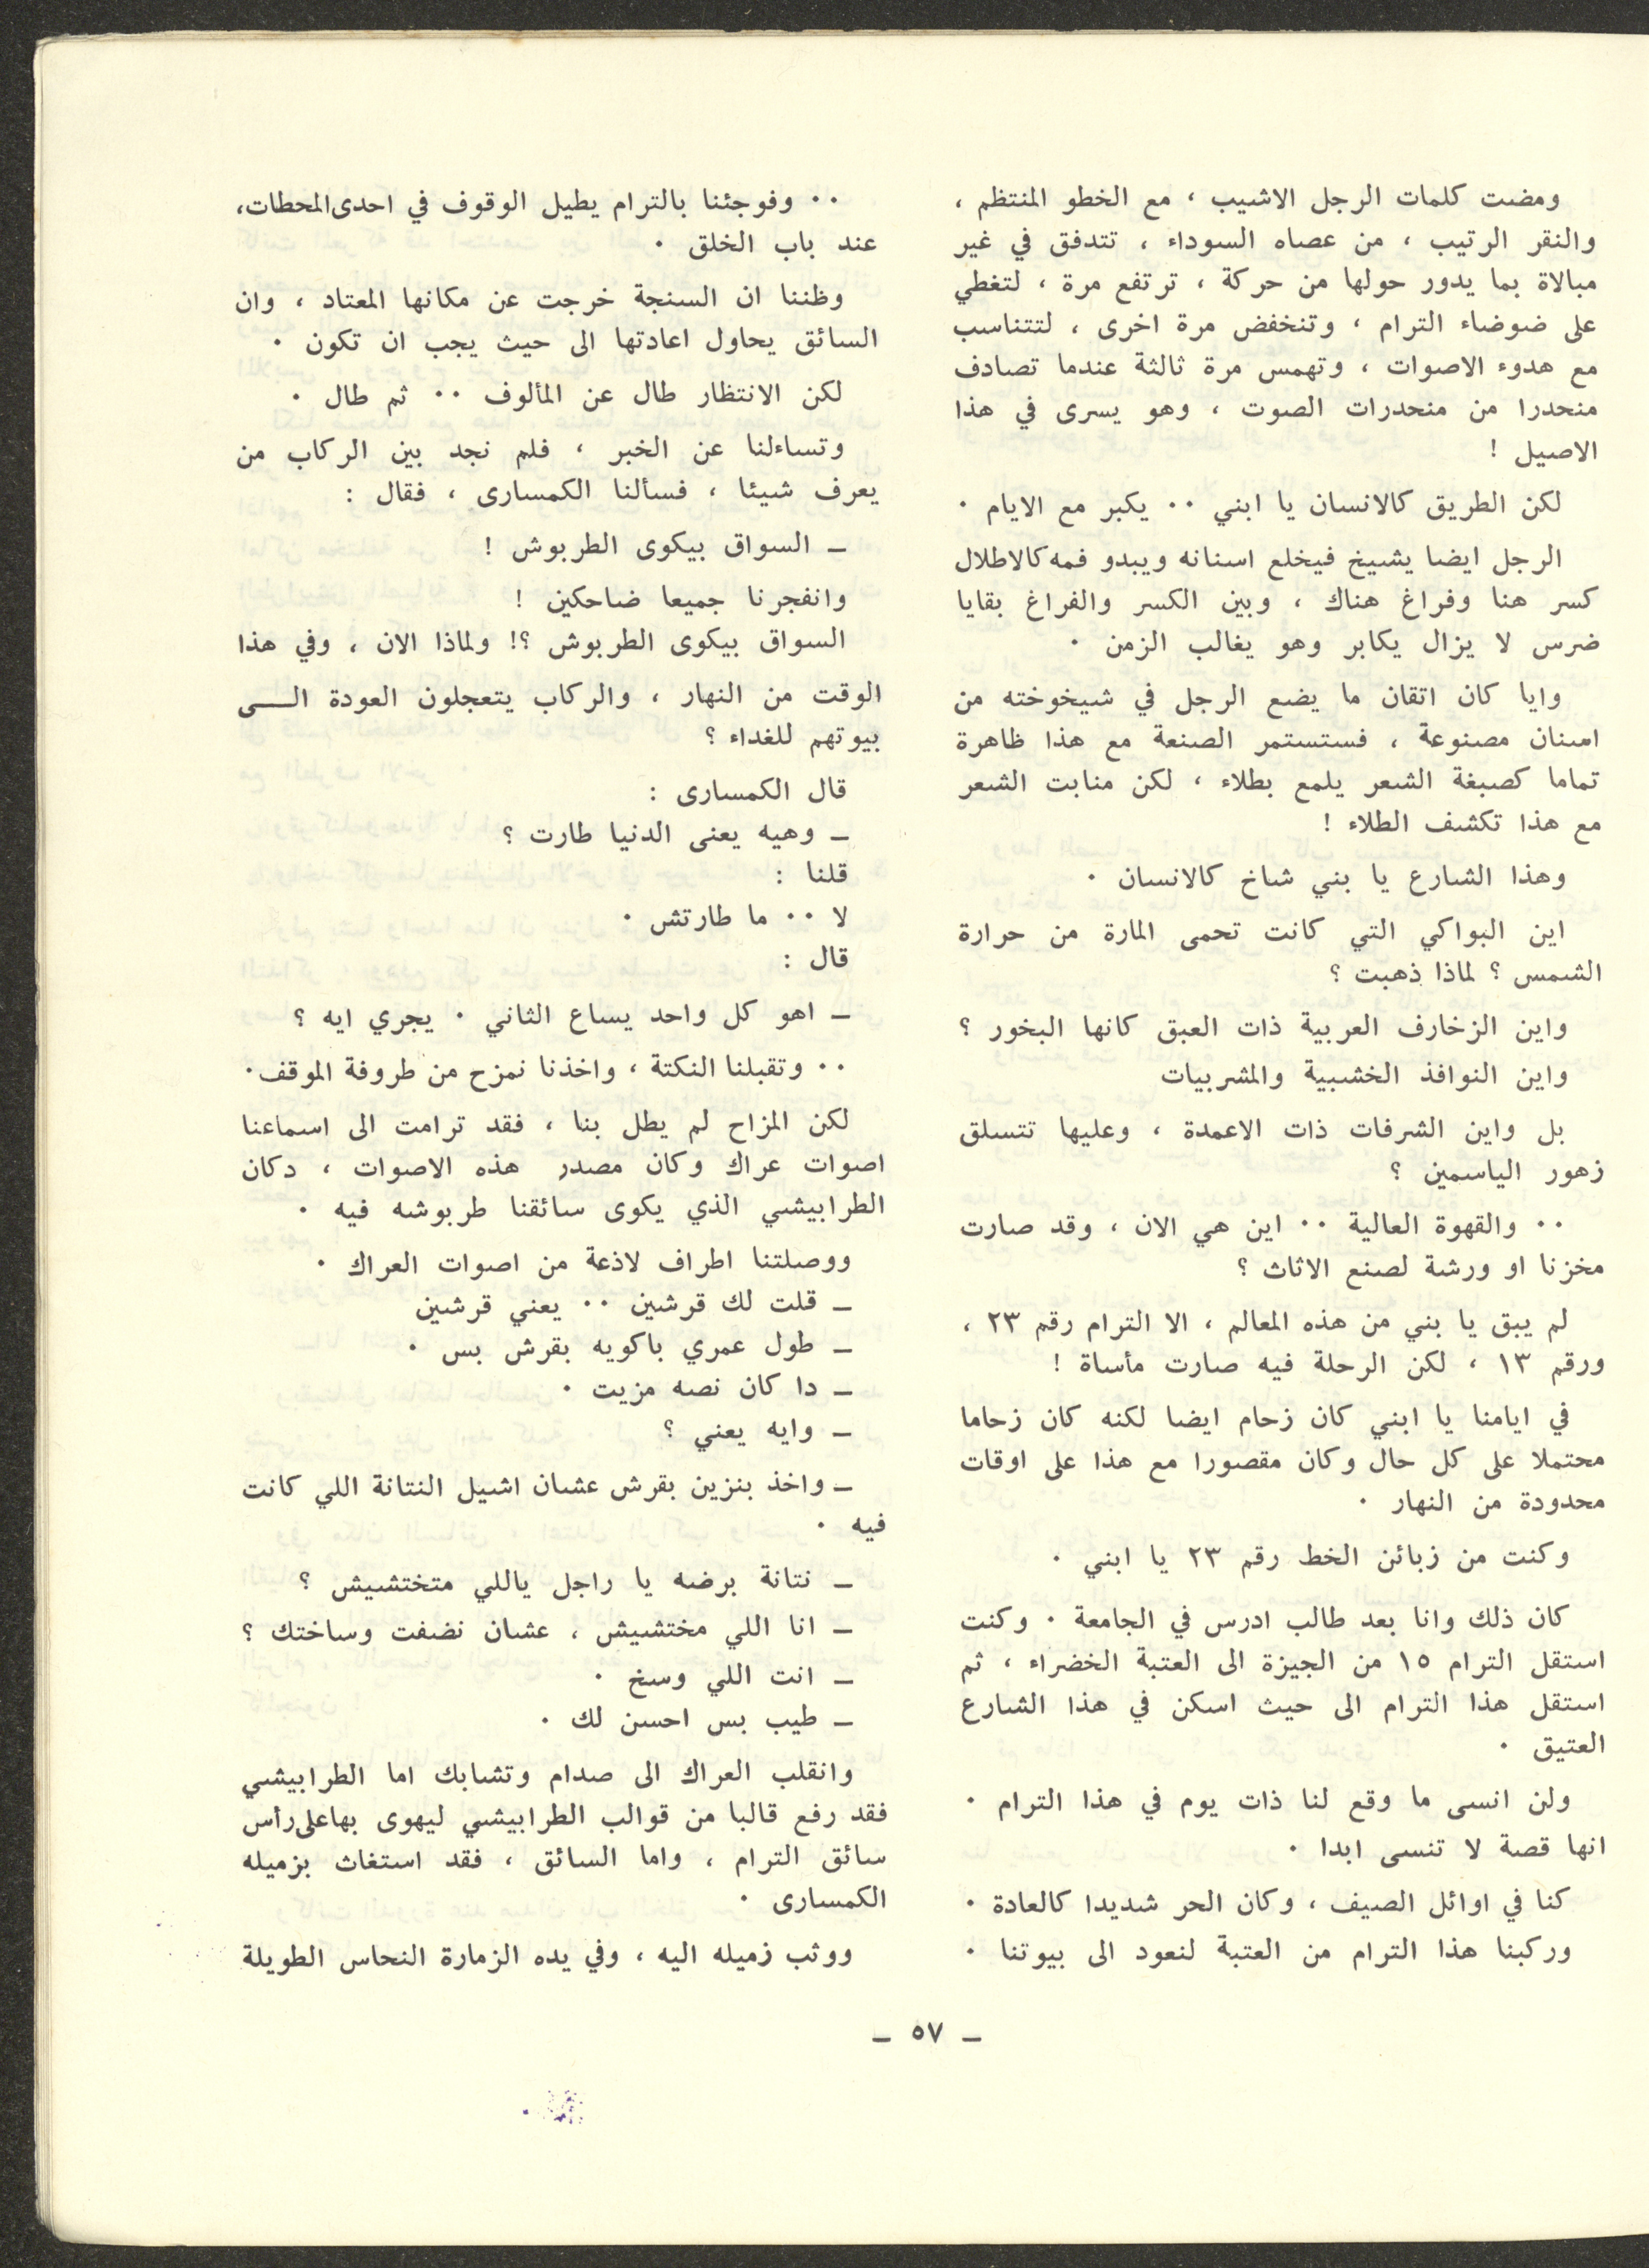 ومضت كلمات الرجل الاشيب ، مع الخطو المنتظم ،
والنقر الرتيب ، من عصاه السوداء ، تتدفق في غير
مبالاة بما يدور حولها من حركة ، ترتفع مرة ، لتغطي
على ضوضاء الترام ، وتنخفض مرة اخرى ، لتتناسب
مع هدوء الاصوات ، وتهمس مرة ثالثة عندما تصادف
منحدرا من منحدرات الصوت ، وهو يسرى في هذا
الاصيل !
لكن الطريق كالانسان يا ابني ٠٠ يكبر مع الايام ٠
الرجل ايضا يشيخ فيخلع اسنانه ويبدو فمه كالاطلال
كسر هنا وفراغ هناك ، وبين الكسر والفراغ بقايا
ضرس لا يزال يكابر وهو يغالب الزمن ٠
وايا كان اتقان ما يضع الرجل في شيخوخته من
اسنان مصنوعة ، فستستمر الصنعة مع هذا ظاهرة
تماما كصبغة الشعر يلمع بطلاء ، لكن منابت الشعر
مع هذا تكشف الطلاء !
وهذا الشارع يا بني شاخ كالانسان ٠
اين البواكي التي كانت تحمى المارة من حرارة
الشمس ؟ لماذا ذهبت ؟
واين الزخارف العربية ذات العبق كانها البخور ؟
واين النوافذ الخشبية والمشربيات
بل واين الشرفات ذات الاعمدة ، وعليها تتسلق
زهور الياسمين ؟
٠٠ والقهوة العالية ٠٠ اين هي الان ، وقد صارت
مخزنا او ورشة لصنع الاثاث ؟
لم يبق يا بني من هذه المعالم ، الا الترام رقم ٢٣ ،
ورقم ١٣ ، لكن الرحلة فيه صارت مأساة !
في ايامنا يا ابني كان زحام ايضا لكنه كان زحاما
محتملا على كل حال وكان مقصورا مع هذا على اوقات
محدودة من النهار ٠
وكنت من زبائن الخط رقم ٢٣ يا ابني ٠
كان ذلك وانا بعد طالب ادرس في الجامعة ٠ وكنت
استقل الترام ١٥ من الجيزة الى العتبة الخضراء ، ثم
استقل هذا الترام الى حيث اسكن في هذا الشارع
العتيق ٠
ولن انسى ما وقع لنا ذات يوم في هذا الترام ٠
انها قصة لا تنسى ابدا ٠
كنا في اوائل الصيف ، وكان الحر شديدا كالعادة ٠
وركبنا هذا الترام من العتبة لنعود الى بيوتنا ٠
٠٠ وفوجئنا بالترام يطيل الوقوف في احدى المحطات،
عند باب الخلق ٠
وظننا ان السنجة خرجت عن مكانها المعتاد ، وان
السائق يحاول اعادتها الى حيث يجب ان تكون ٠
لكن الانتظار طال عن المألوف ٠٠ ثم طال ٠
وتساءلنا عن الخبر ، فلم نجد بين الركاب من
يعرف شيئا ، فسألنا الكمسارى ، فقال :
ـ السواق بيكوى الطربوش !
وانفجرنا جميعا ضاحكين !
السواق بيكوى الطربوش ؟! ولماذا الان ، وفي هذا
الوقت من النهار ، والركاب يتعجلون العودة الـــى
بيوتهم للغداء ؟
قال الكمسارى :
ـ وهيه يعنى الدنيا طارت ؟
قلنا :
لا ٠٠ ما طارتش ٠
قال :
ـ اهو كل واحد يساع الثاني ٠ يجري ايه ؟
٠٠ وتقبلنا النكتة ، واخذنا نمزح من طروفة الموقف٠
لكن المزاح لم يطل بنا ، فقد ترامت الى اسماعنا
اصوات عراك وكان مصدر هذه الاصوات ، دكان
الطرابيشي الذي يكوى سائقنا طربوشه فيه ٠
ووصلتنا اطراف لاذعة من اصوات العراك ٠
ـ قلت لك قرشين ٠٠ يعني قرشين
ـ طول عمري باكويه بقرش بس ٠
ـ دا كان نصه مزيت ٠
ـ وايه يعني ؟
ـ واخذ بنزين بقرش عشان اشيل النتانة اللي كانت
فيه ٠
ـ نتانة برضه يا راجل ياللي متختشيش ؟
ـ انا اللي مختشيش ، عشان نضفت وساختك ؟
ـ انت اللي وسخ ٠
ـ طيب بس احسن لك ٠
وانقلب العراك الى صدام وتشابك اما الطرابيشي
فقد رفع قالبا من قوالب الطرابيشي ليهوى بها على رأس
سائق الترام ، واما السائق ، فقد استغاث بزميله
الكمسارى ٠
ووثب زميله اليه ، وفي يده الزمارة النحاس الطويلة
ـ ٥٧ ـ